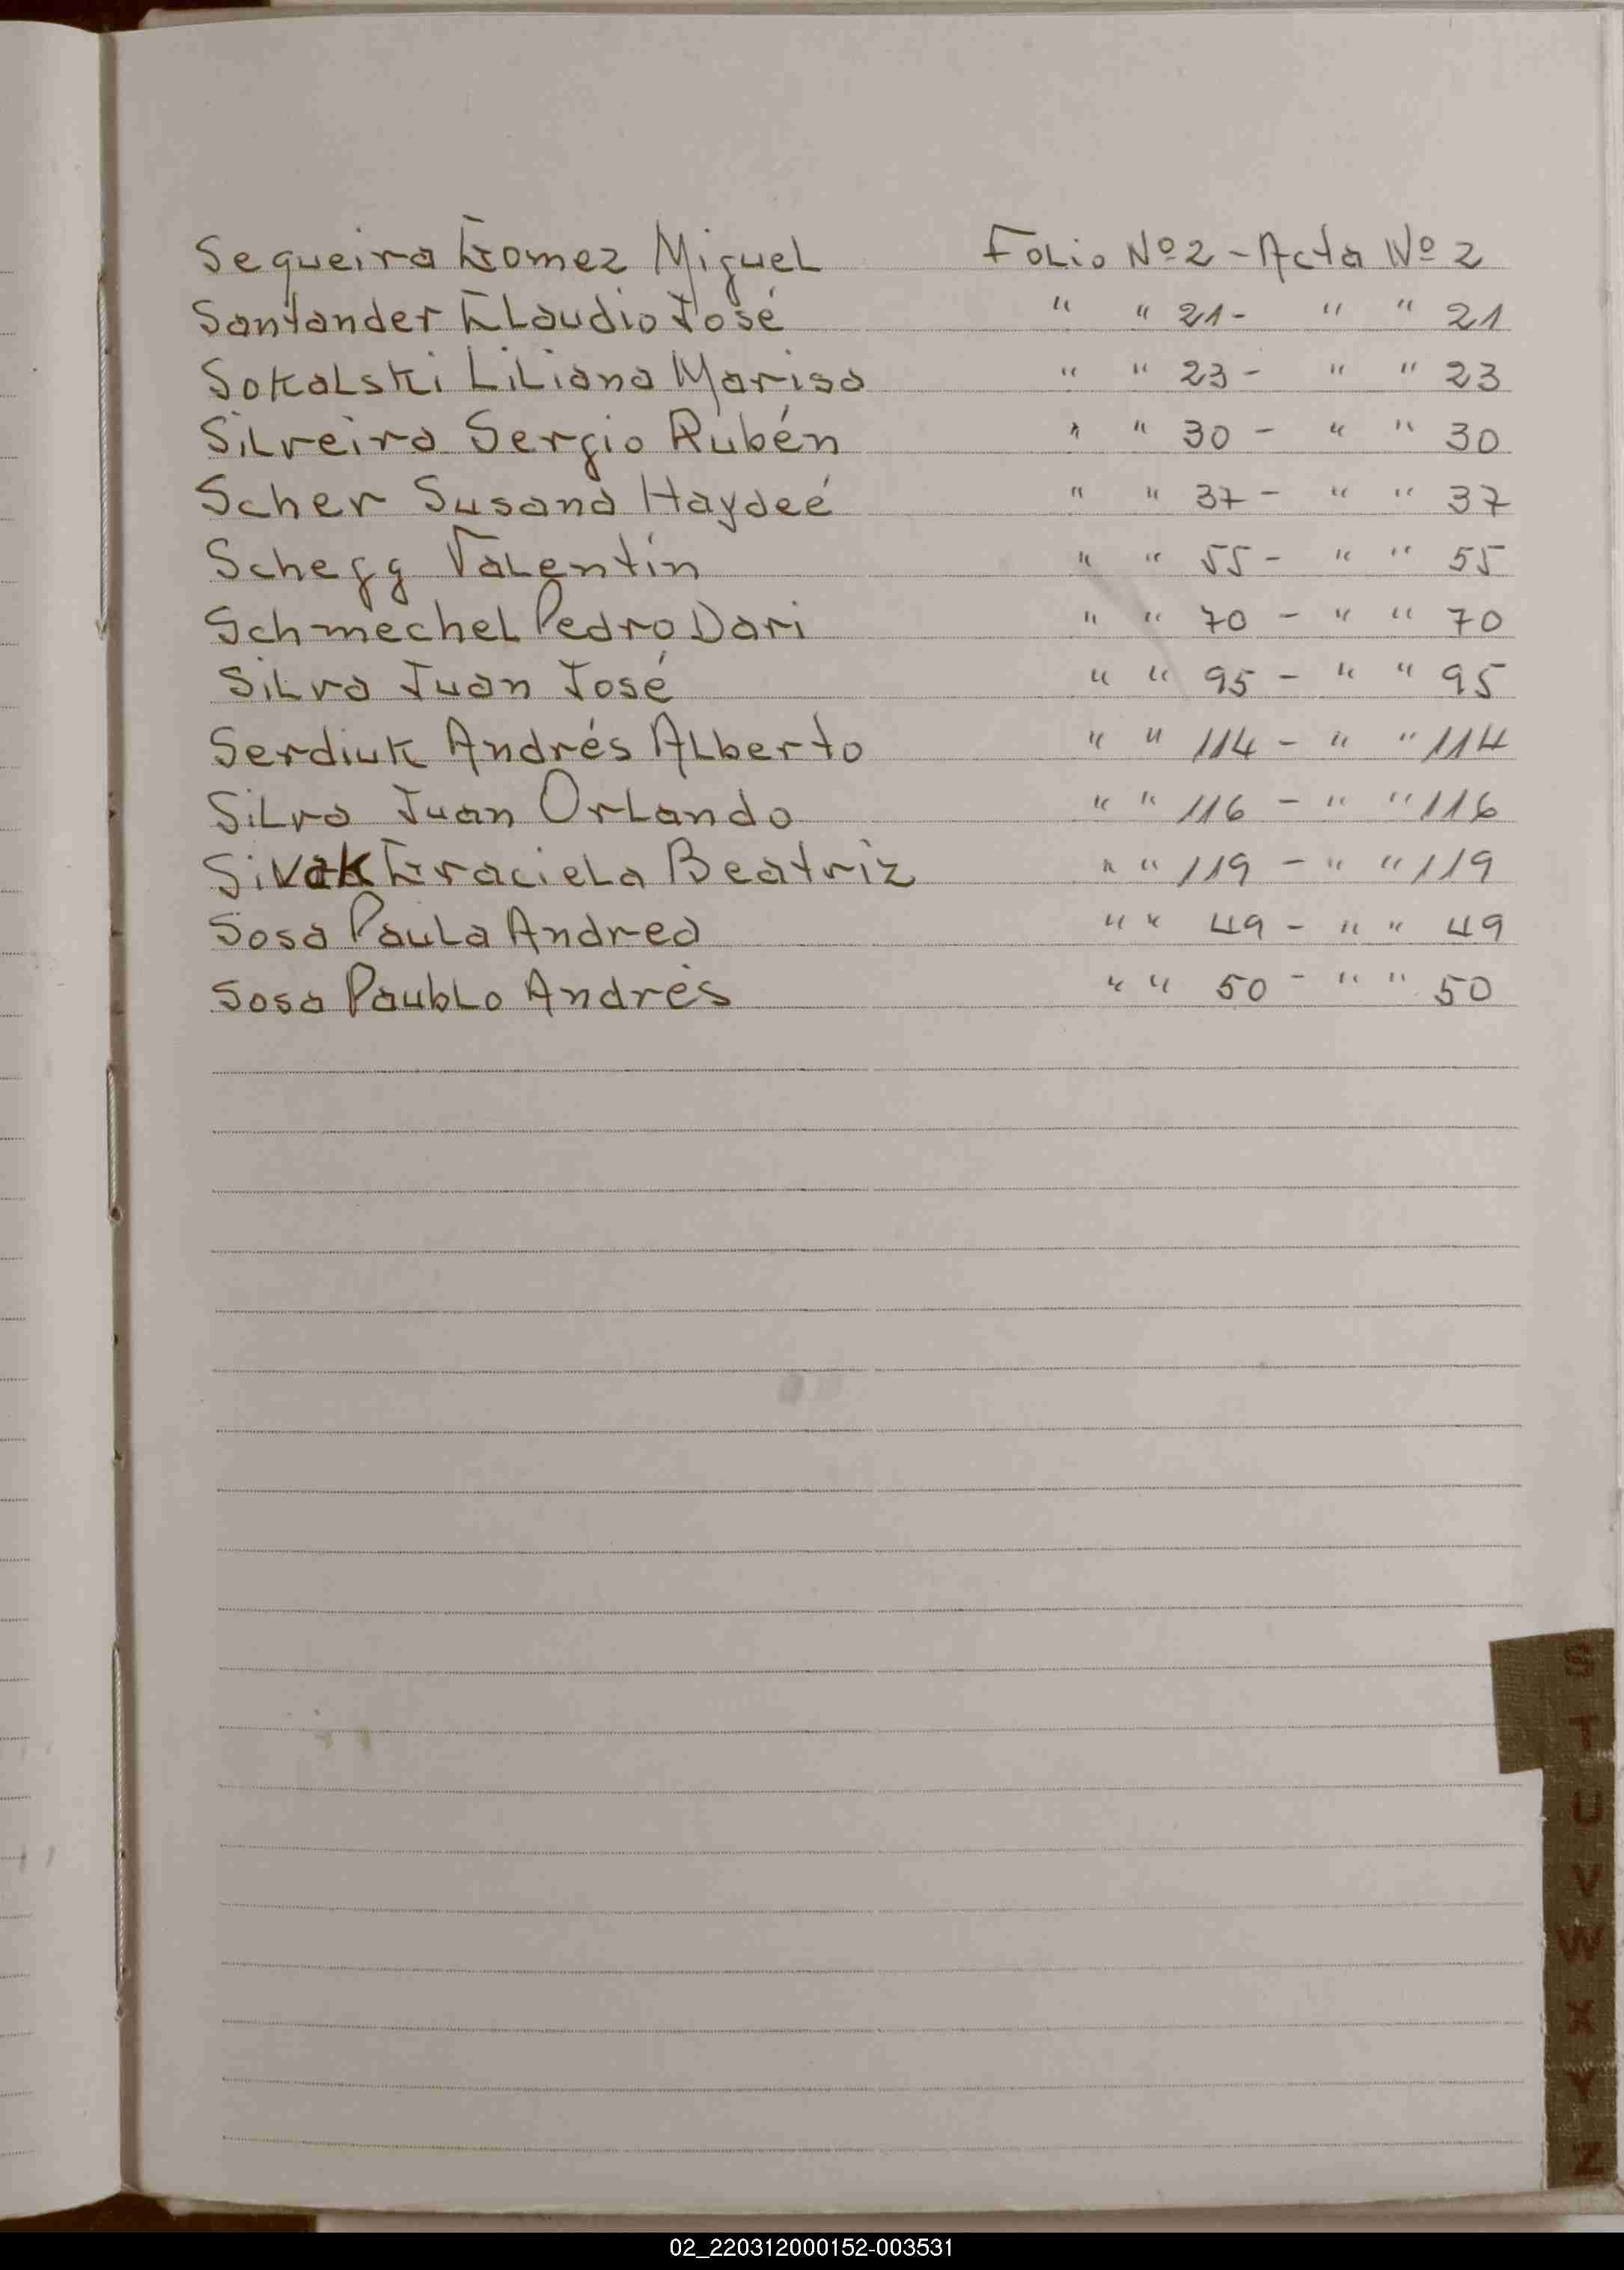 Sequeira Gomez Miguel Folio Nº 2 - Acta Nº 2
Santander Claudio José " " 21 - " " 21
Sokalski Liliana Marisa " " 23 - " " 23
Silveira Sergio Rubén " " 30 - " " 30
Scher Susana Haydeé " " 37 - " " 37
Schegg Valentín " " 55 - " " 55
Schmechel Pedro Dari " " 70 - " " 70
Silva Juan José " " 95 - " " 95
Serdiuk Andrés Alberto " " 114 - " " 114
Silva Juan Orlando " " 116 - " " 116
Sivak Graciela Beatriz " " 119 - " " 119
Sosa Paula Andrea " " 49 - " " 49
Sosa Paublo Andrés " " 50 - " " 50
S
T
U
V
W
X
Y
Z
02_220312000152-003531